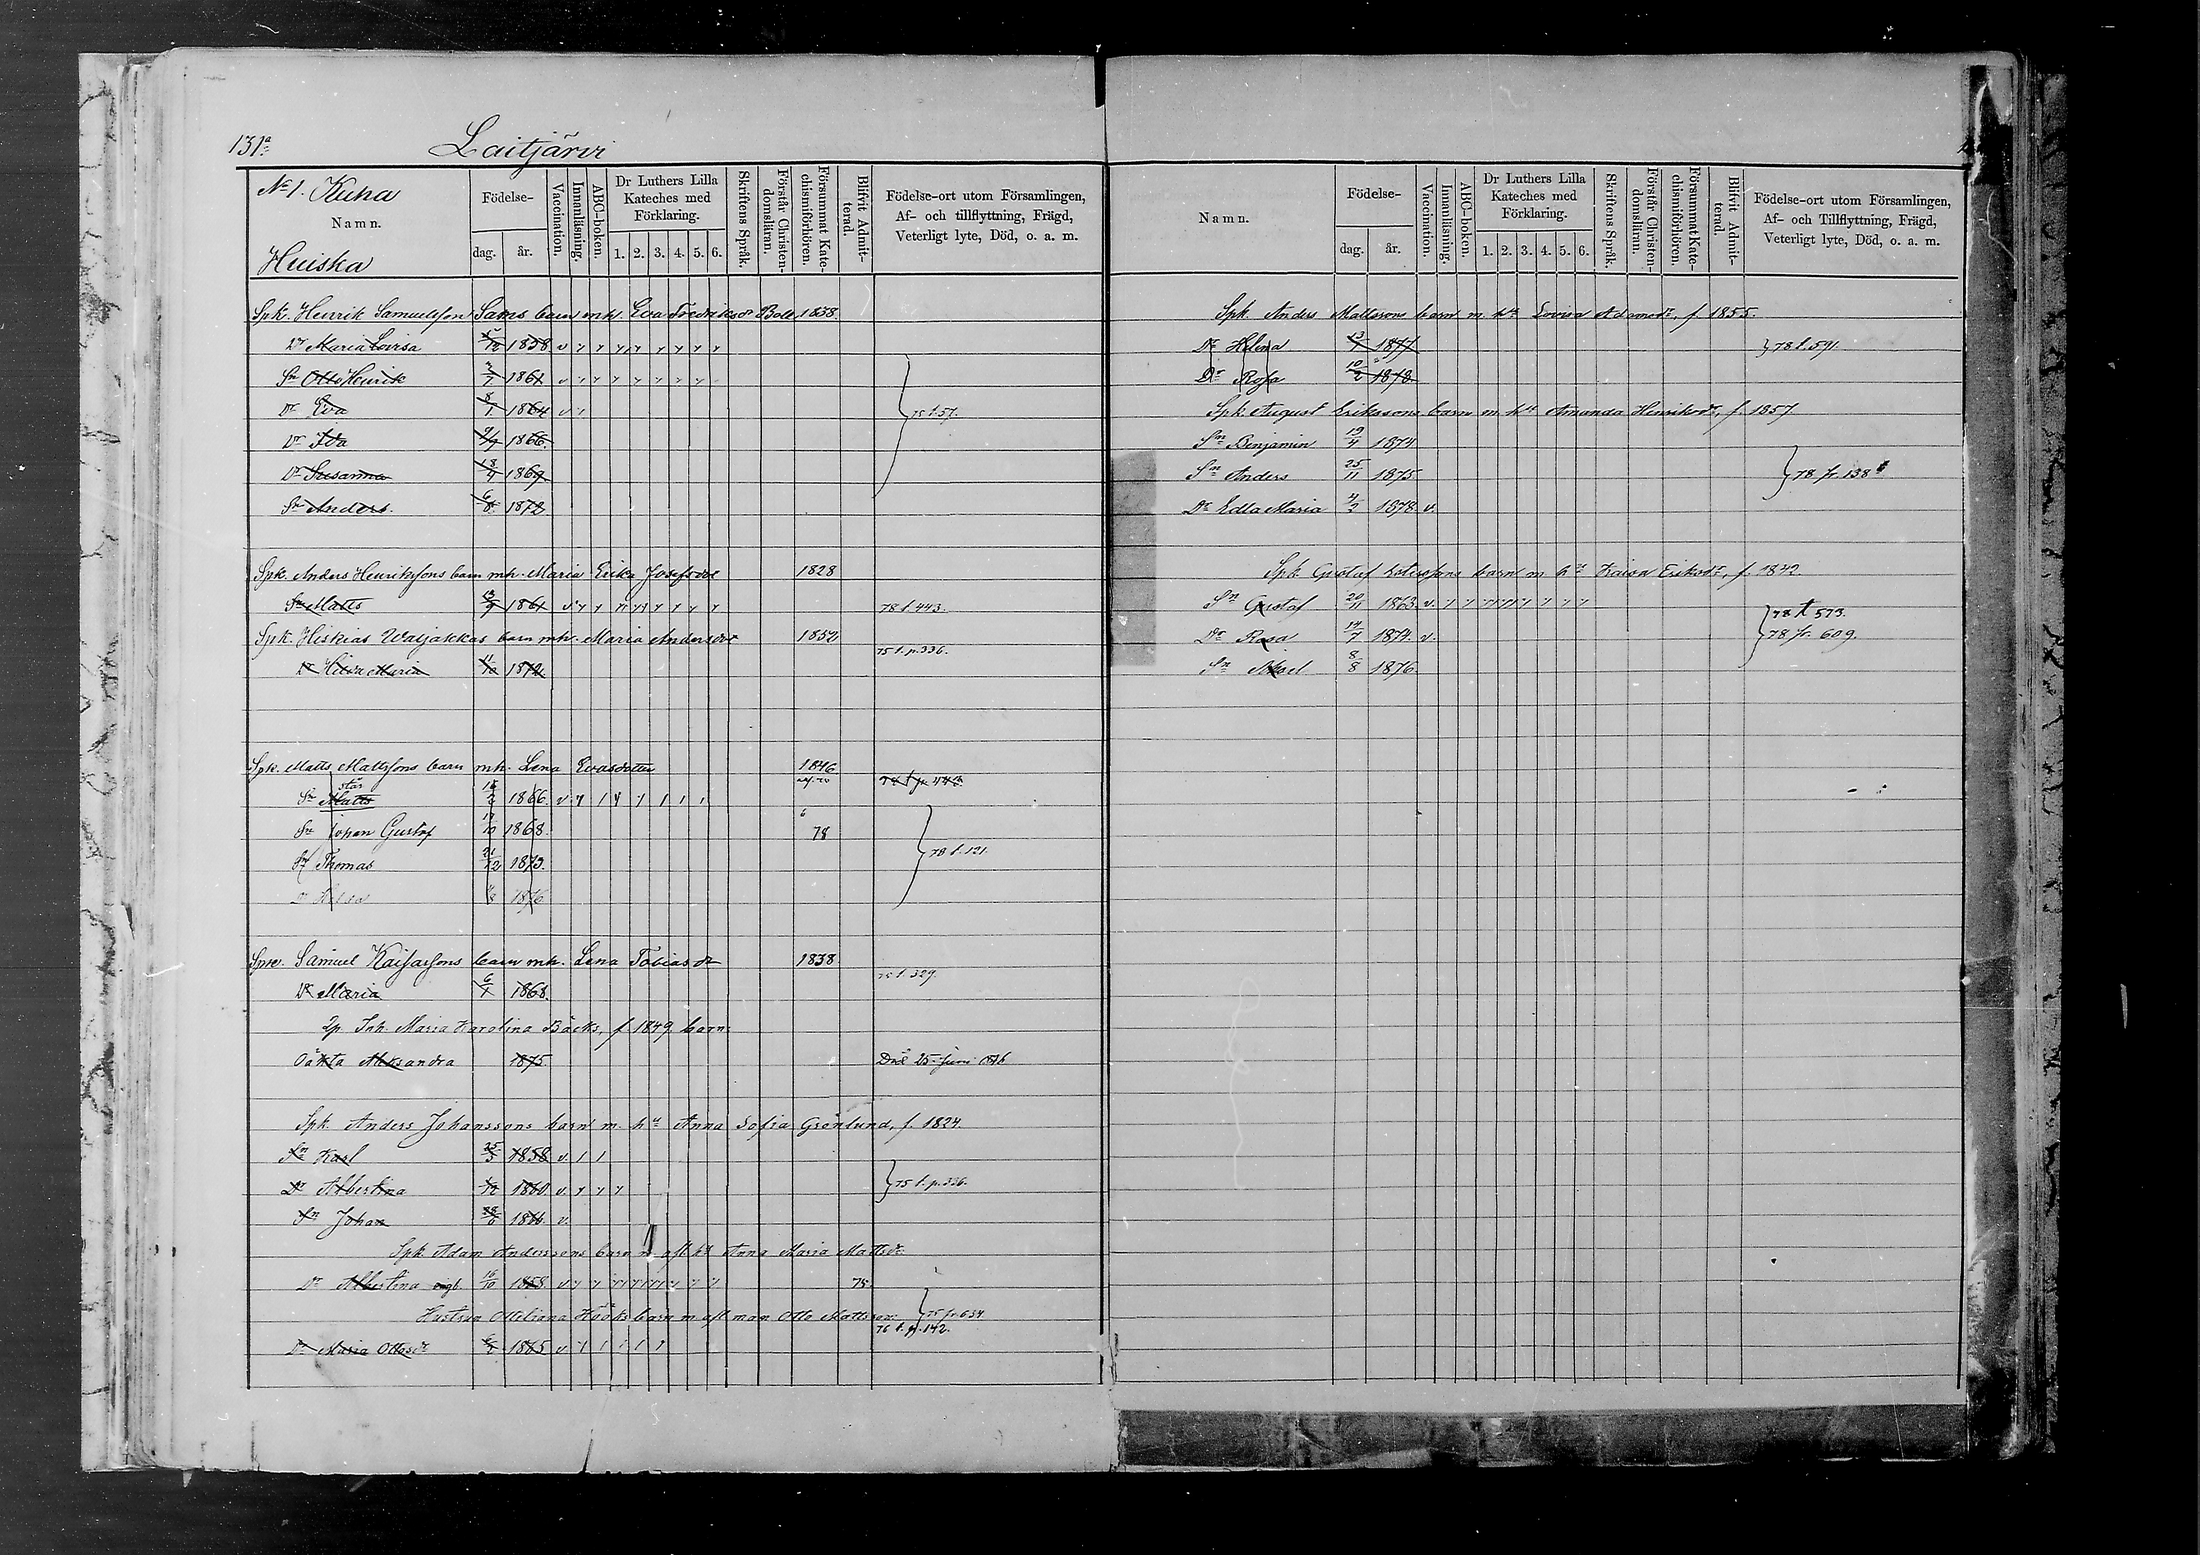 131a
Laitjärvi
No 1. Kuha
Namn.
Huiska
Födelse-
dag. år.
Vaccination.
Innanläsning.
ABC-boken.
Dr Luthers Lilla
Kateches med
Förklaring.
1. 2. 3. 4. 5. 6.
Skriftens Språk.
Förstår Christendomsläran.
Försummat Katechismiförhören.
Blifvit Admitterad.
Födelse-ort utom Församlingen,
Af- och tillflyttning, Frägd,
Veterligt lyte, Död, o. a. m.
Spk. Henrik Samuelsson Sams barn mh. Eva Fredriksdr Boll 1838.
Dr Maria Lovisa 1858 v
Sn Otto Henrik 2/7 1861 v
Dr Eva 8/1 1864 v
75 t. 57.
Dr Ida 9/7 1866.
Dr Susanna 18/4 1869
Sn Anders. 6/8 1872
Spk. Anders Henrikssons barn mh. Maria Erika Josefsdr 1828
Sn Matts 13/9 1861 v 78 t. 443.
Spk. Hiskias Waijakkas barn mh. Maria Andersdr 1852
75 t. p. 336.
Dr Hilda Maria 11/10 1872
Spk. Matts Mattssons barn mh. Lena Evasdotter 1846
Sn Matts 1866. v
Sn Johan Gustaf 17/10 1868. 78
Sn Thomas 21/12 1873. 78 t. 121.
Dr 1876
Samuel Kaisassons barn mh. Lena Tobiasdr 1838
75 t. 329.
Dr Maria 6/1 1868.
Inh. Maria Karolina Bäcks, f. 1849 barn:
Oäkta Aleksandra 1875. Död 25 Juni 1876
Spk. Anders Johanssons barn m. hu Anna Sofia Grönlund, f. 1824.
Sn Karl 25/3 1858 v.
Dr Albertina 1860 v. 75 t. p. 336.
Sn Johan 1866 v.
Spk. Adam Anderssons barn m. afl. hu Anna Maria Mattsdr
Dr Albertina 16/10 1858 v 75.
Hustrun Ottiliana Hööks barn m. afl. man Otto Mattsson 75 fr. 634
76 t. p. 142.
Dr Maria Ottosdr 1865 v
Namn.
Födelse-
dag. år.
Vaccination.
Innanläsning.
ABC-boken.
Dr Luthers Lilla
Kateches med
Förklaring.
1. 2. 3. 4. 5. 6.
Skriftens Språk.
Förstår Christendomsläran.
Försummat Katechismiförhören.
Blifvit Admitterad.
Födelse-ort utom Församlingen,
Af- och Tillflyttning, Frägd,
Veterligt lyte, Död, o. a. m.
Spk. Anders Mattssons barn m. hu Lovisa Adamsdr, f. 1855.
Dr Helena 13/1 1877 78 t. 591.
Dr Rosa 10/2 1878
Spk. August Erikssons barn m. hu Amanda Henriksdr, f. 1857
Sn Benjamin 19/4 1874.
Sn Anders 25/11 1875. 78 fr. 138
Dr Edla Maria 4/2 1878. v.
Spk. Gustaf barn m. hu Kaisa Eriksdr, f. 1842.
Sn Gustaf 20/11 1863. v. 78 t 573.
Dr Rosa 14/7 1874. v. 78 fr. 609.
Sn 8/8 1876.